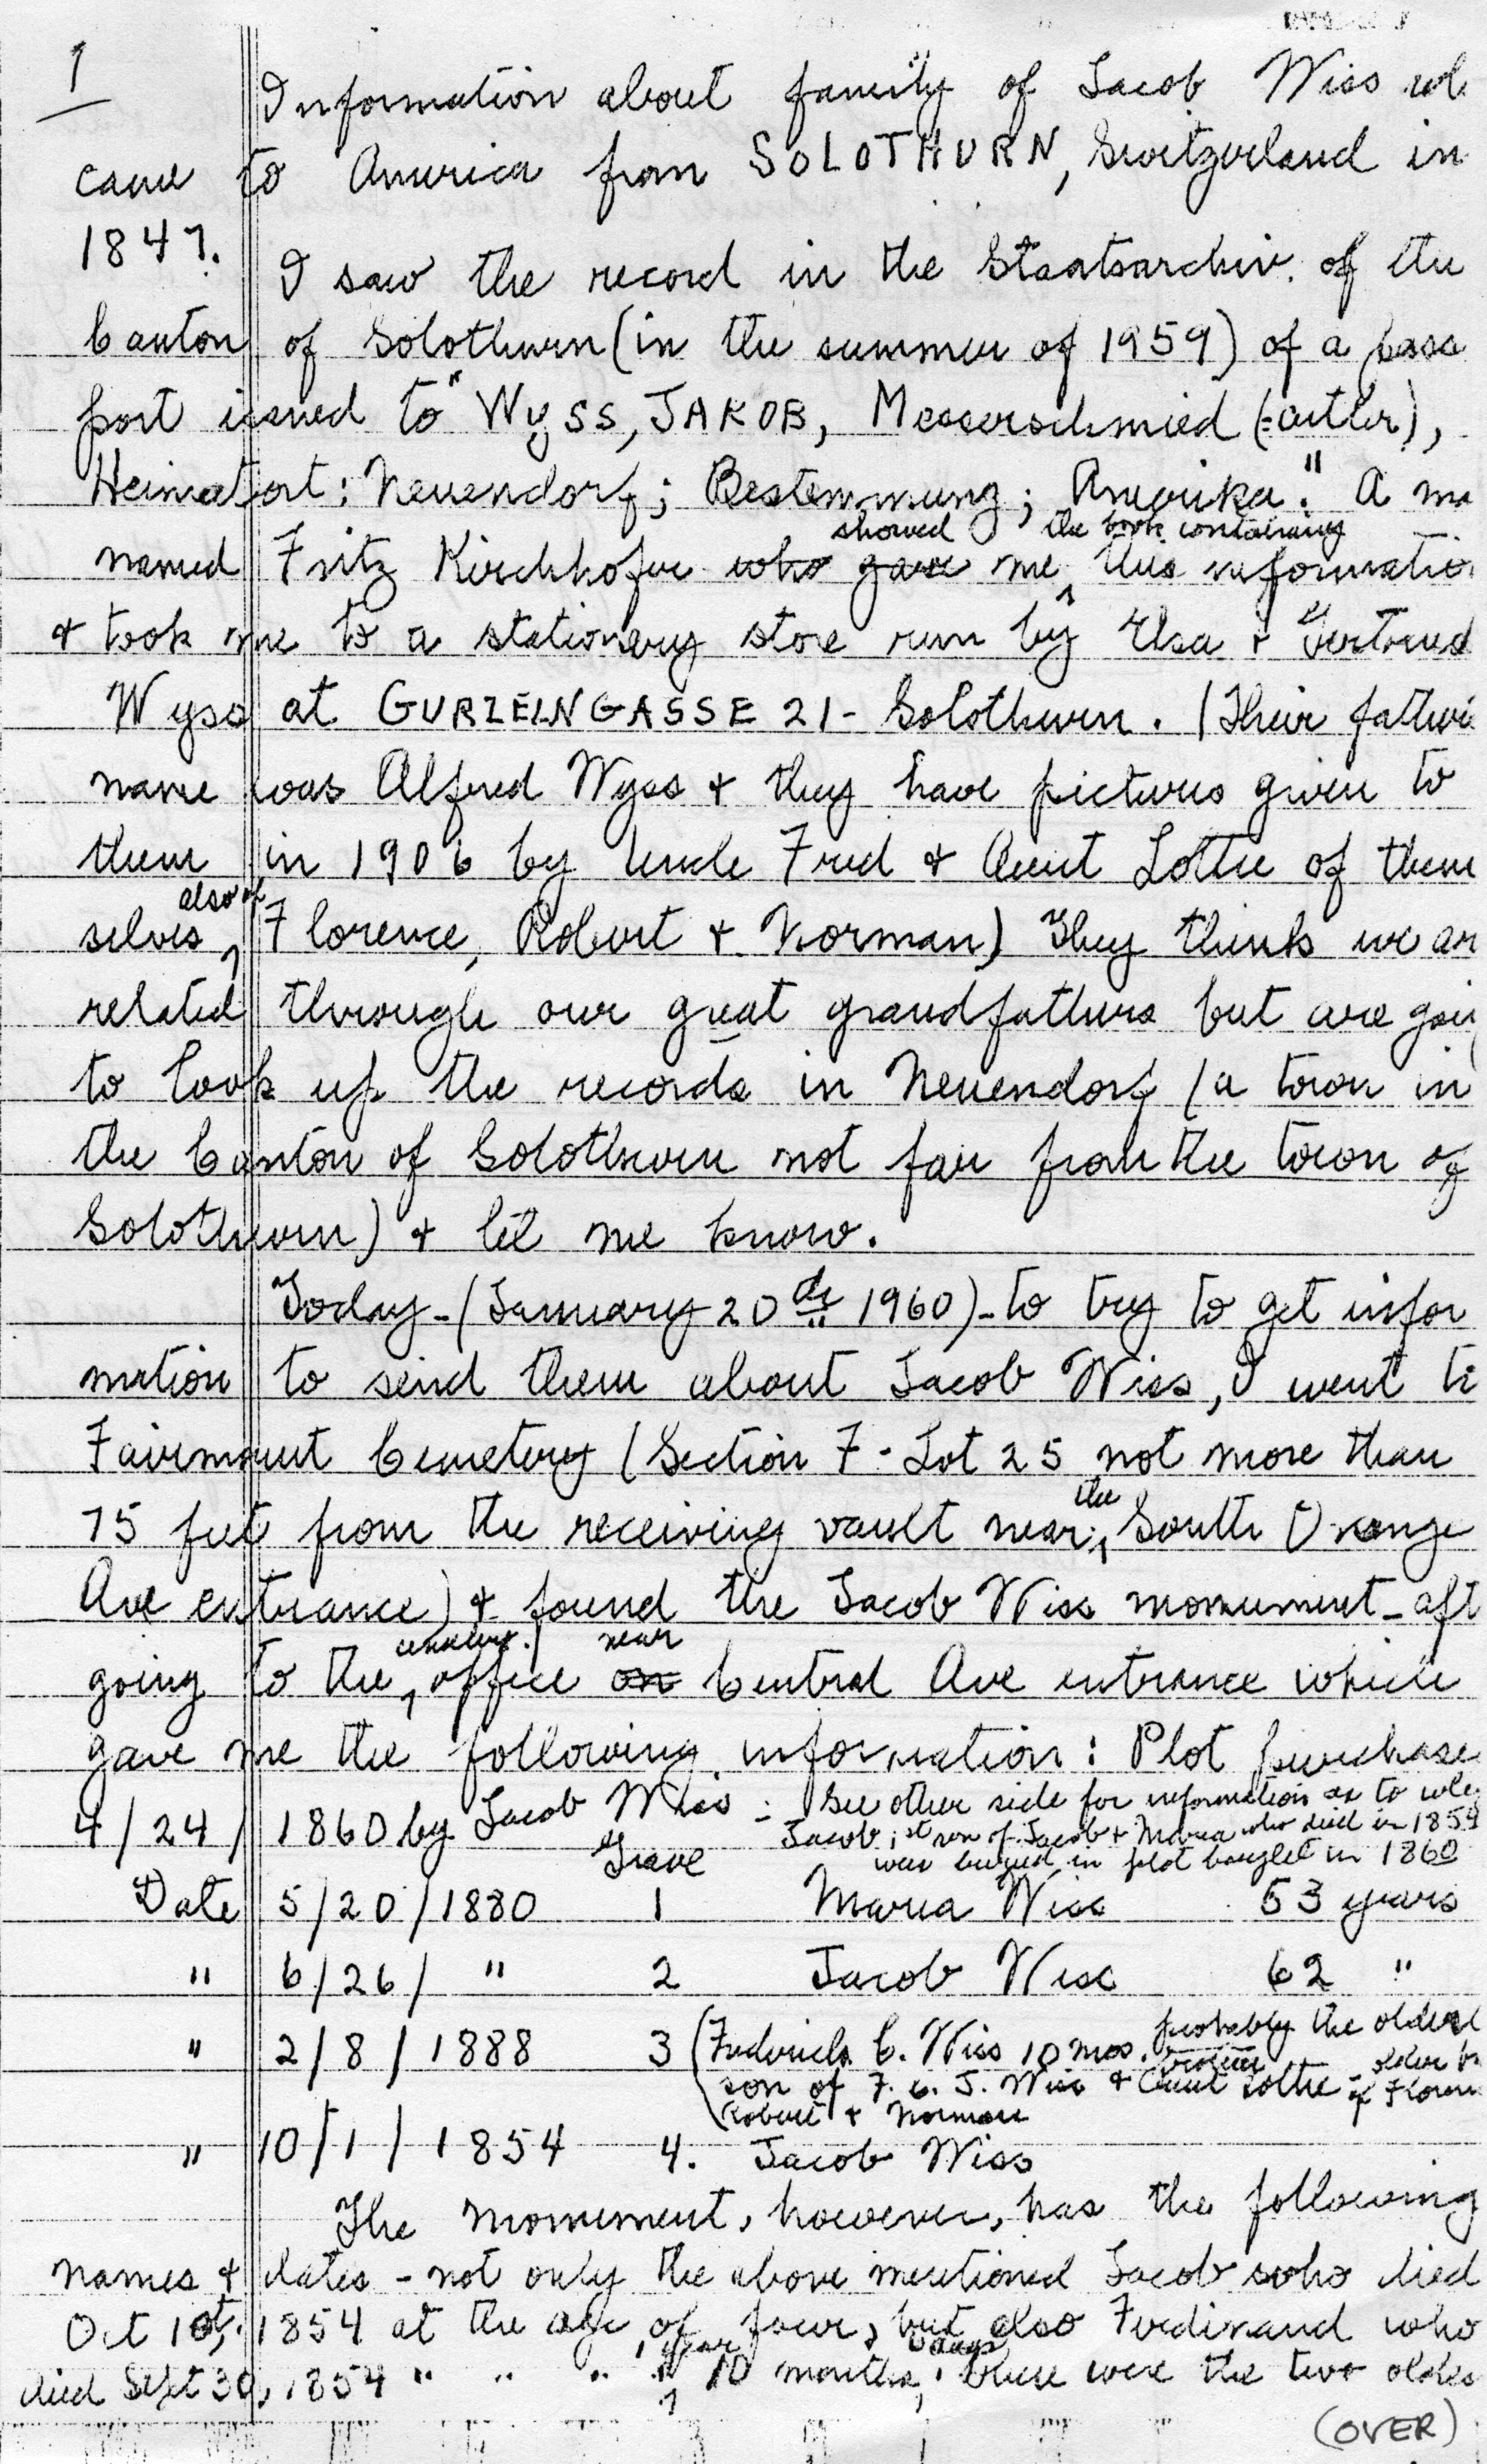 1
Information about family of Jacob Wiss
came to America from SOLOTHURN, Switzerland in
1847.
I saw the record in the Staatsarchiv. of the
Canton of Solothurn (in the summer of 1959) of a pass
port issued to "WySS, JAKOB, Messerschmied (=cutler),
Heimatort: Neuendorf; Bestemmung; Amerika." A
showed the book containing
named Fritz Kirchhofer who gave me this informatio
& took me to a stationery store run by Elsa & Gertrud
Wyss at GURZELNGASSE 21 - Solothurn. (Their
name was Alfred Wyss & they have pictures given to
them in 1906 by Uncle Fred & Aunt Lottie of them
also of
selves, Florence, Robert & Norman) They think we ar
related through our great grandfathers but are goin
to look up the records in Neuendorf (a town in
the Canton of Solothurn not far from the town of
Solothurn) & let me know.
Today - (January 20th 1960) - to try to get infor
mation to send them about Jacob Wiss, I went to
Fairmount Cemetery (Section F - Lot 25 not more than
the
75 feet from the receiving vault near South Orange
Ave entrance) & found the Jacob Wiss monument - aft
near
going to the office on Central Ave entrance which
gave me the following information: Plot purchase
4/24/1860 by Jacob Wiss - See other side for information as to
Jacob, 1st son of Jacob & Maria who died in 1854
Grave was buryed in plot bought in 1860
Date 5/20/1880 1 Maria Wiss 53 years
" 6/26/ " 2 Jacob Wiss 62 "
" 2/8/1888 3 (Frederick C. Wiss 10 mos. probably the oldest
brother
son of F. C. J. Wiss & Aunt Lottie - older of
Robert & Norman
" 10/1/1854 4. Jacob Wiss
The monument, however, has the following
names & dates - not only the above mentioned Jacob who died
Oct 1st, 1854 at the age of four, but also Ferdinand who
year days
died Sept 30, 1854 " " " " 10 months, these were the two oldes
(OVER)